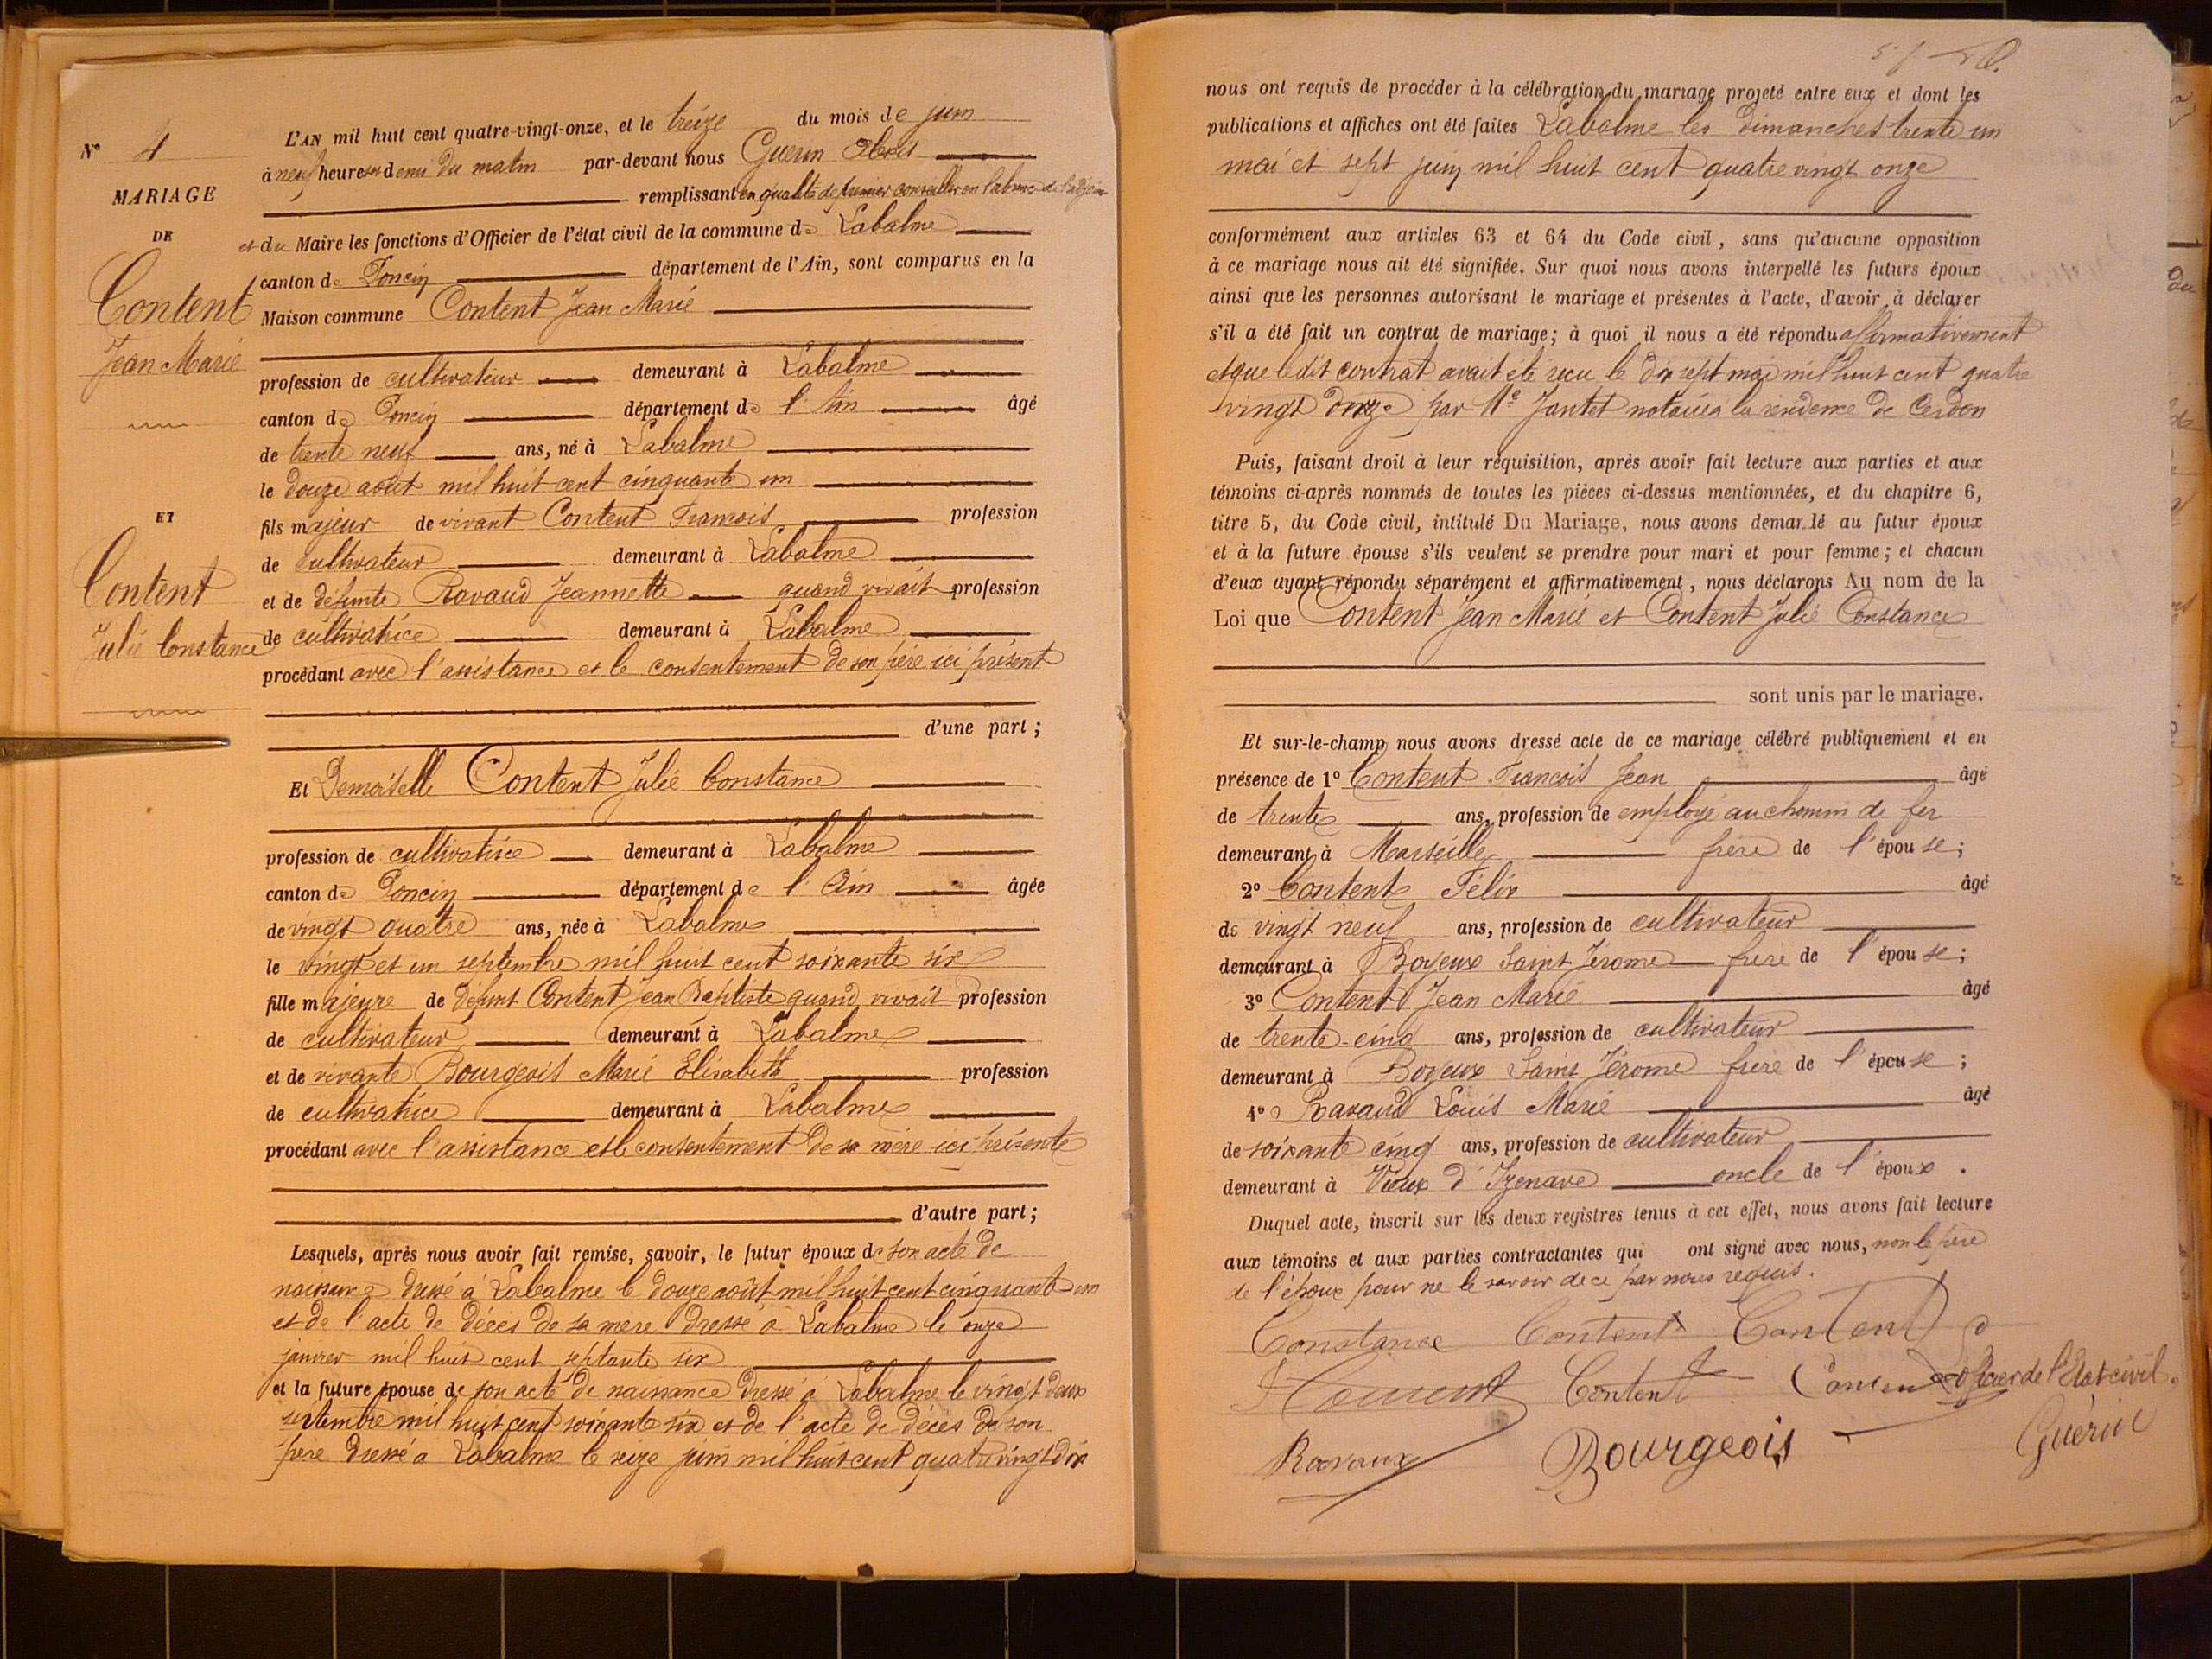 N° 4
MARIAGE
DE
Content
Jean Marie
ET
Content
Julie Constance
L'AN mil huit cent quatre-vingt-onze, et le treize du mois de juin
à neuf heures et demi du matin par-devant nous Guerin
remplissant en qualité de premier conseiller en l'absence de l'adjoint
et du Maire les fonctions d'Officier de l'état civil de la commune de Labalme
canton de Poncin département de l'Ain, sont comparus en la
Maison commune Content Jean Marie
profession de cultivateur demeurant à Labalme
canton de Poncin département de l'Ain âgé
de trente neuf ans, né à Labalme
le douze août mil huit cent cinquante un
fils majeur de vivant Content Francois profession
de cultivateur demeurant à Labalme
et de défunte Ravaud Jeannette quand vivait profession
de cultivatrice demeurant à Labalme
procédant avec l'assistance et le consentement de son père ici présent
d'une part ;
Et Demoiselle Content Julie Constance
profession de cultivatrice demeurant à Labalme
canton de Poncin département de l'Ain âgée
de vingt quatre ans, née à Labalme
le vingt et un septembre mil huit cent soixante six
fille majeure de défunt Content Jean Baptiste quand vivait profession
de cultivateur demeurant à Labalme
et de vivante Bourgeois Marie Elisabeth profession
de cultivatrice demeurant à Labalme
procédant avec l'assistance et le consentement de sa mère ici présente
d'autre part ;
Lesquels, après nous avoir fait remise, savoir, le futur époux de son acte de
naissance dressé à Labalme le douze août mil huit cent cinquante un
et de l'acte de décès de sa mère dressé à Labalme le onze
janvier mil huit cent septante six
et la future épouse de son acte de naissance dressé à Labalme le vingt deux
septembre mil huit cent soixante six et de l'acte de décès de son
père dressé à Labalme le seize juin mil huit cent quatre vingt dix
nous ont requis de procéder à la célébration du mariage projeté entre eux et dont les
publications et affiches ont été faites Labalme les dimanches trente un
mai et sept juin mil huit cent quatre vingt onze
conformément aux articles 63 et 64 du Code civil, sans qu'aucune opposition
à ce mariage nous ait été signifiée. Sur quoi nous avons interpellé les futurs époux
ainsi que les personnes autorisant le mariage et présentes à l'acte, d'avoir à déclarer
s'il a été fait un contrat de mariage ; à quoi il nous a été répondu affirmativement
et que le dit contrat avait été reçu le dix sept mai mil huit cent quatre
vingt onze par Me Jantet notaire à la résidence de Cerdon
Puis, faisant droit à leur réquisition, après avoir fait lecture aux parties et aux
témoins ci-après nommés de toutes les pièces ci-dessus mentionnées, et du chapitre 6,
titre 5, du Code civil, intitulé Du Mariage, nous avons demandé au futur époux
et à la future épouse s'ils veulent se prendre pour mari et pour femme ; et chacun
d'eux ayant répondu séparément et affirmativement, nous déclarons Au nom de la
Loi que Content Jean Marie et Content Julie Constance
sont unis par le mariage.
Et sur-le-champ nous avons dressé acte de ce mariage célébré publiquement et en
présence de 1° Content Francois Jean âgé
de trente ans, profession de employé au chemin de fer
demeurant à Marseille frère de l'épouse ;
2° Content Félix âgé
de vingt neuf ans, profession de cultivateur
demeurant à Boyeux Saint Jérome frère de l'épouse ;
3° Content Jean Marie âgé
de trente-cinq ans, profession de cultivateur
demeurant à Boyeux Saint Jérome frère de l'épouse ;
4° Ravaud Louis Marie âgé
de soixante cinq ans, profession de cultivateur
demeurant à Vieux d'Izenave oncle de l'époux.
Duquel acte, inscrit sur les deux registres tenus à cet effet, nous avons fait lecture
aux témoins et aux parties contractantes qui ont signé avec nous, non le père
de l'époux pour ne le savoir de ce par nous requis.
Constance Content Content
Content Content Content Officier de l'Etat civil.
Ravaux Bourgeois Guérin